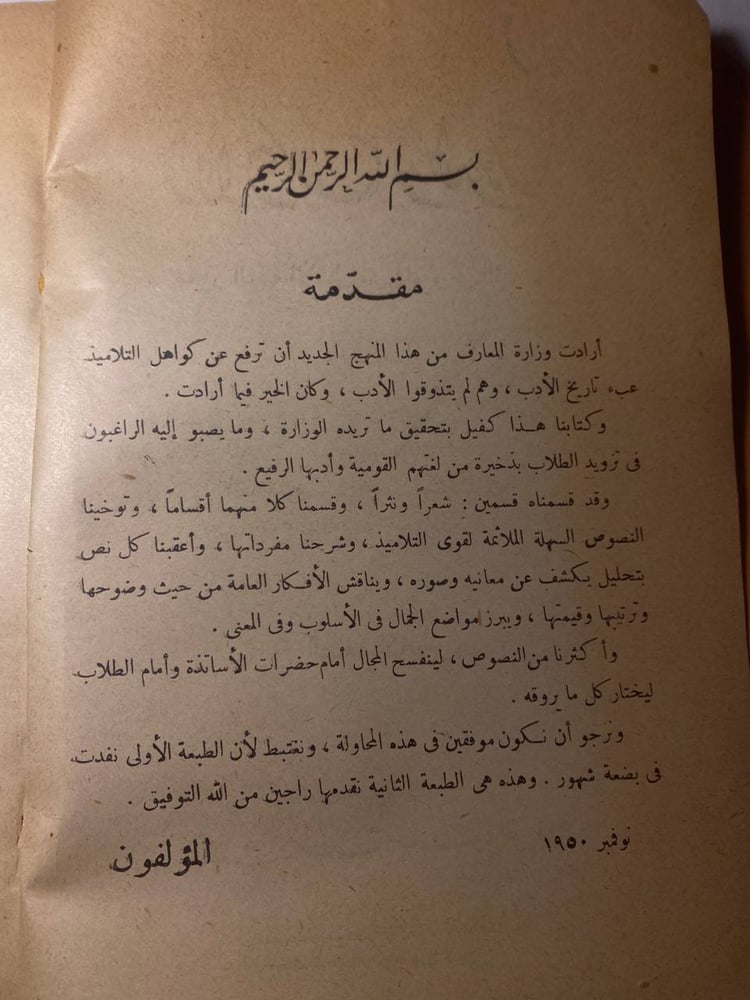 بسم الله الرحمن الرحيم
مقدّمة
أرادت وزارة المعارف من هذا المنهج الجديد أن ترفع عن كواهل التلاميذ
عبء تاريخ الأدب ، وهم لم يتذوقوا الأدب ، وكان الخير فيما أرادت .
وكتابنا هذا كفيل بتحقيق ما تريده الوزارة ، وما يصبو إليه الراغبون
فى تزويد الطلاب بذخيرة من لغتهم القومية وأدبها الرفيع .
وقد قسمناه قسمين : شعراً ونثراً ، وقسمنا كلا منهما أقساماً ، وتوخينا
النصوص السهلة الملائمة لقوى التلاميذ ، وشرحنا مفرداتها ، وأعقبنا كل نص
بتحليل يكشف عن معانيه وصوره ، ويناقش الأفكار العامة من حيث وضوحها
وترتيبها وقيمتها ، ويبرز مواضع الجمال فى الأسلوب وفى المعنى .
وأكثرنا من النصوص ، لينفسح المجال أمام حضرات الأساتذة وأمام الطلاب
ليختار كل ما يروقه .
ونرجو أن نكون موفقين فى هذه المحاولة ، ونغتبط لأن الطبعة الأولى نفدت
فى بضعة شهور . وهذه هى الطبعة الثانية نقدمها راجين من الله التوفيق .
نوفمبر ١٩٥٠
المؤلفون